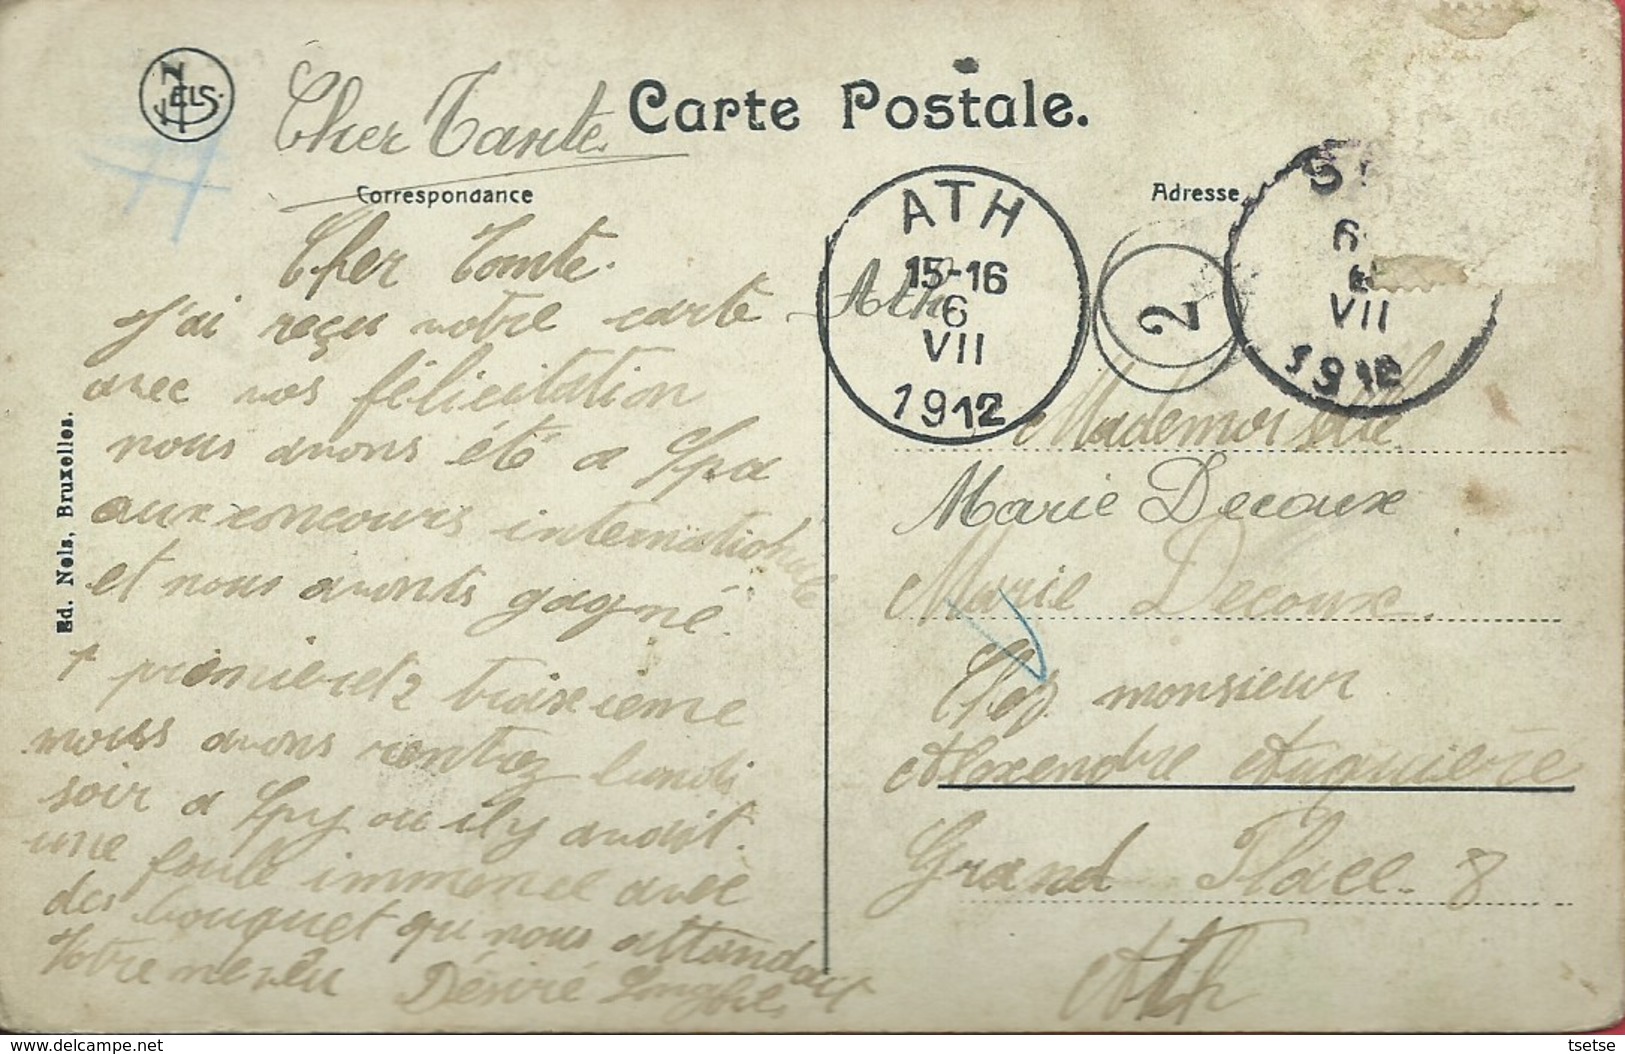 NELS
Cher Tante.
Carte Postale.
Correspondance
Adresse
Cher Tonte.
J'ai reçu votre carte
avec vos félicitation
nous avons été a Spa
aux concours internationale
et nous avonts gagné.
1 premier et 2 troixieme
nous avons rentrez lundi
soir a Spy ou il y avait.
une foule immence avec
des bouquet qu nous attandait
Votre neveu Désiré
Ed. Nels, Bruxelles.
ATH
15-16
6
VII
1912
2
S
6
VII
1912
Ath
Mademoiselle
Marie Decoux
Marie Decoux.
Chez monsieur
Alexendre
Grand Place. 8
Ath
delcampe.net
tsetse